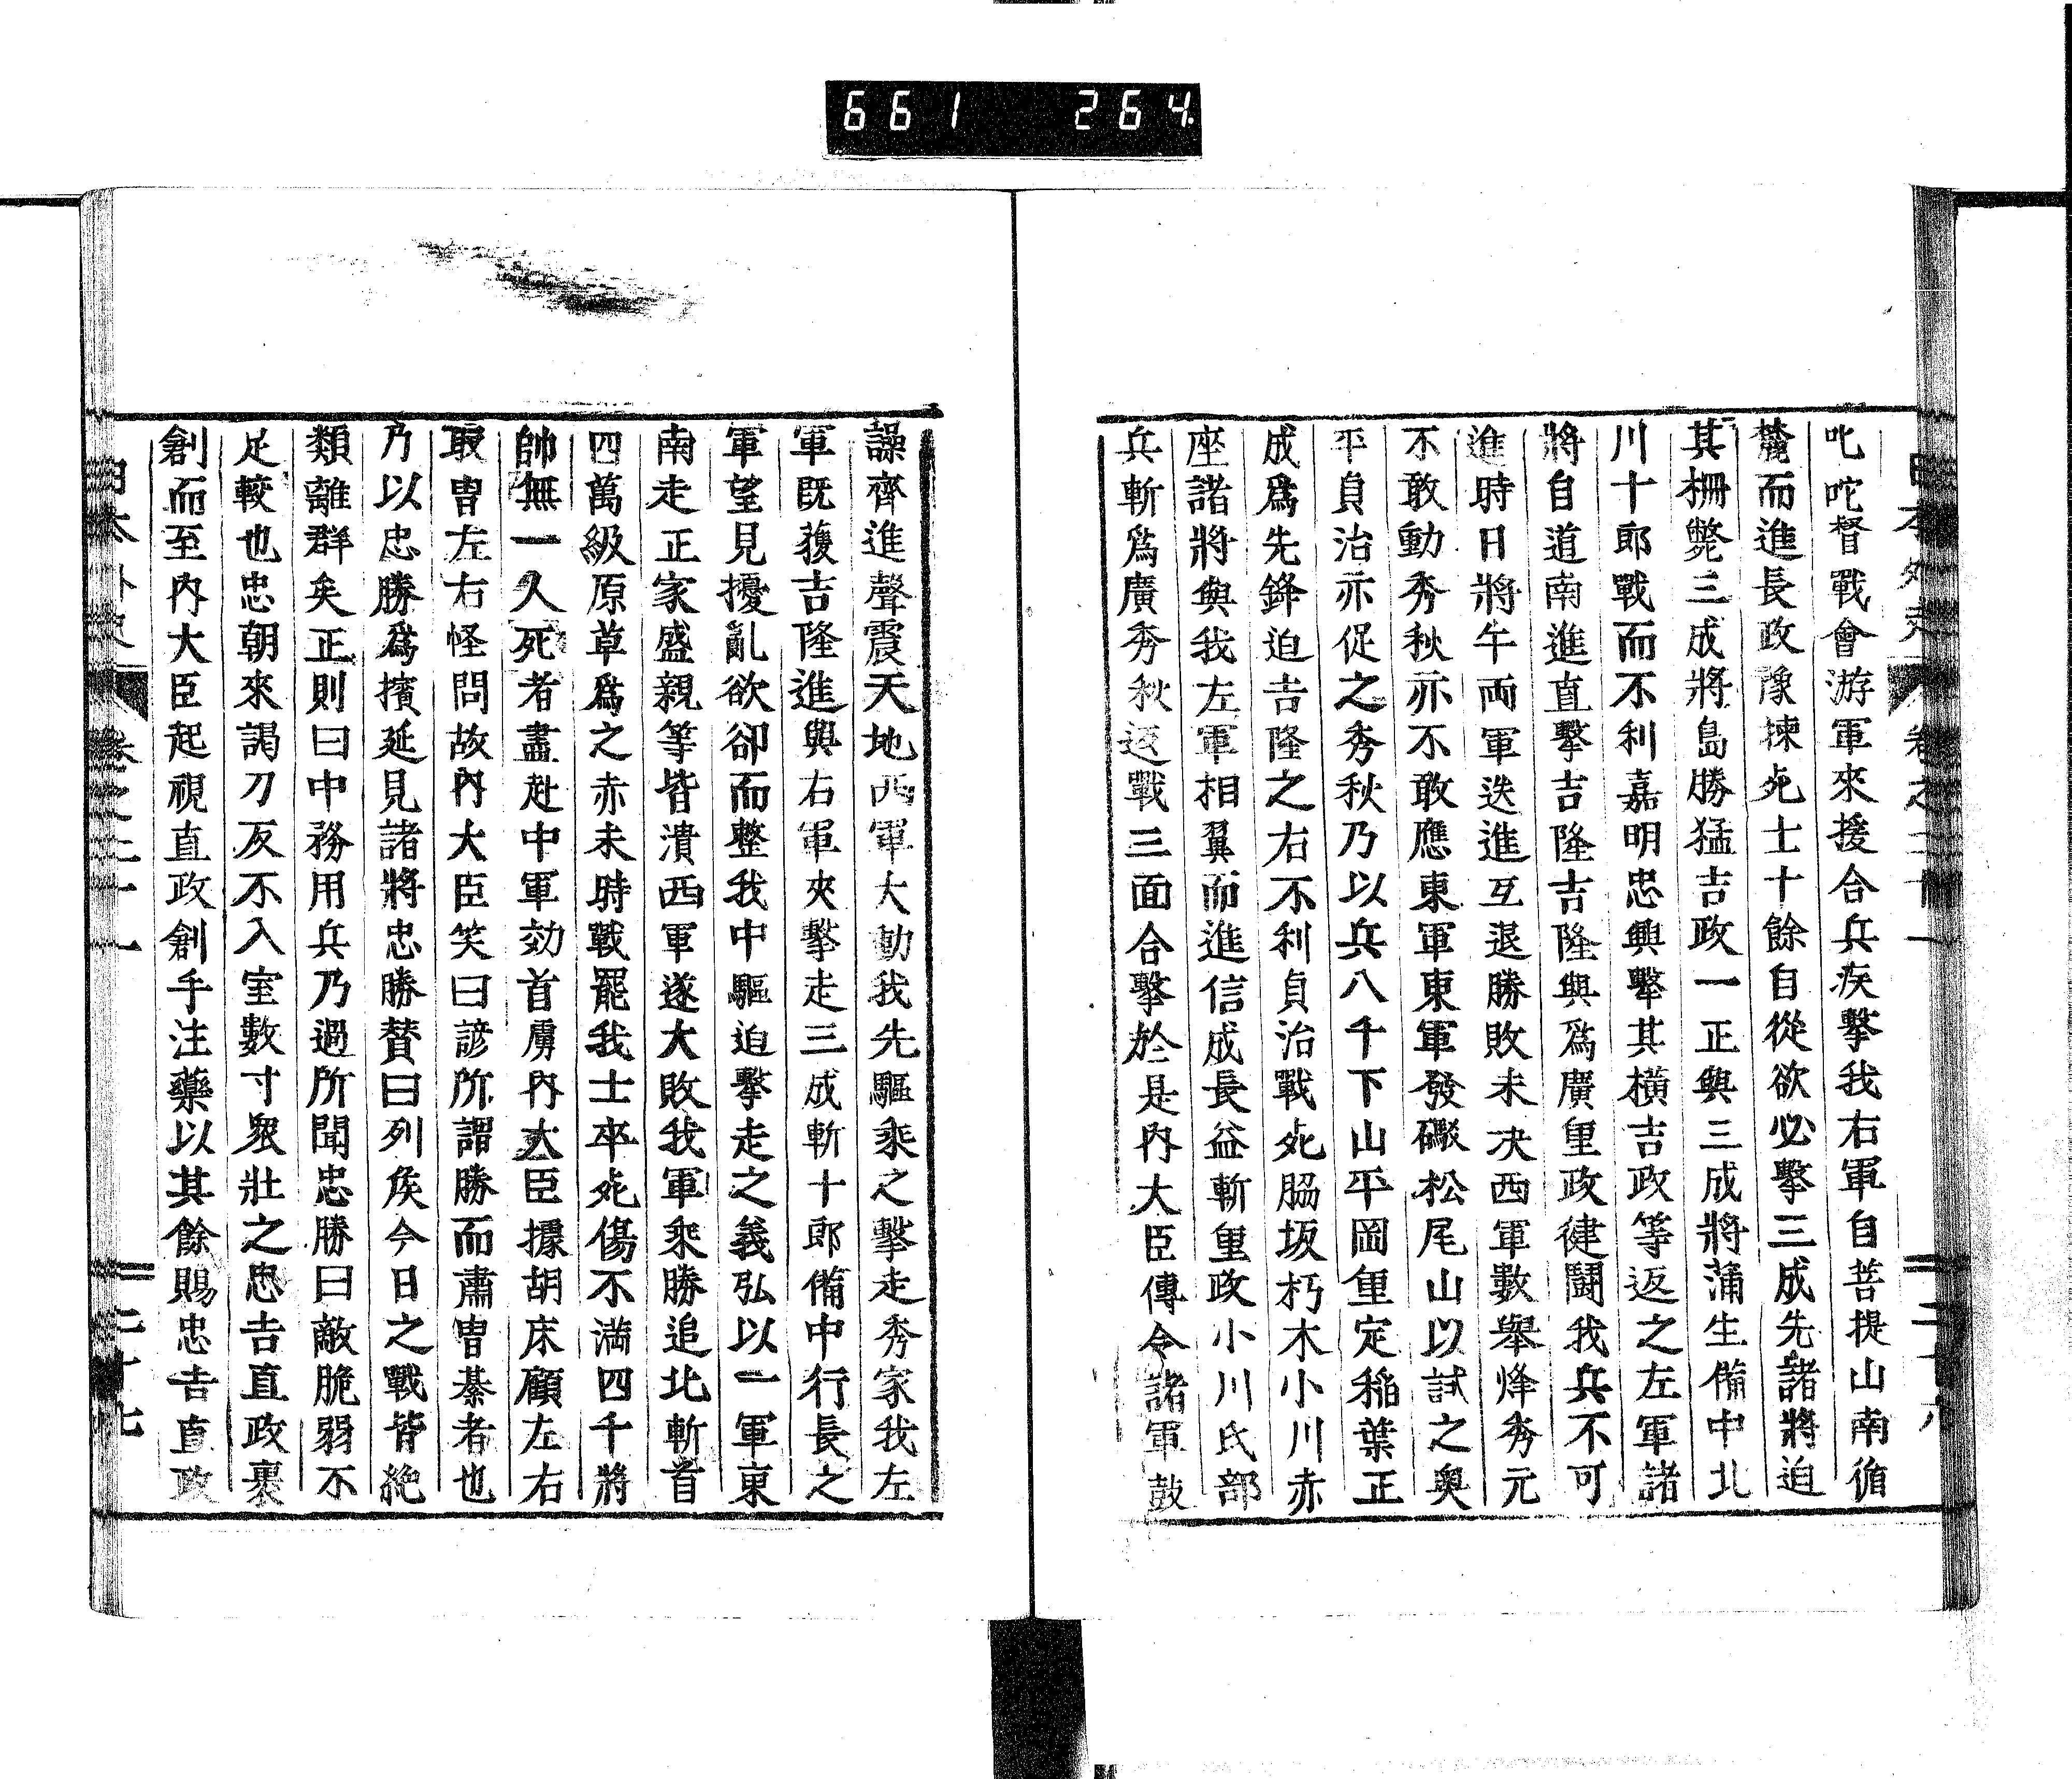 661 264
叱咤督戰會游軍來援合兵疾擊我右軍自菩提山南循
麓而進長政豫揀死士十餘自從欲必擊三成先諸將迫
其柵斃三成將島勝猛吉政一正與三成將蒲生備中北
川十郎戰而不利嘉明忠興擊其橫吉政等返之左軍諸
將自道南進直擊吉隆吉隆與爲廣重政健鬪我兵不可
進時日將午両軍迭進互退勝敗未决西軍數舉烽秀元
不敢動秀秋亦不敢應東軍東軍發礮松尾山以試之奥
平貞治亦促之秀秋乃以兵八千下山平岡重定稲葉正
成爲先鋒迫吉隆之右不利貞治戰死脇坂朽木小川赤
座諸將與我左軍相翼而進信成長益斬重政小川氏部
兵斬爲廣秀秋返戰三面合擊於是內大臣傳令諸軍鼓
譟齊進聲震天地西軍大動我先驅乘之擊走秀家我左
軍既獲吉隆進與右軍夾擊走三成斬十郎備中行長之
軍望見擾亂欲卻而整我中驅迫擊走之義弘以一軍東
南走正家盛親等皆潰西軍遂大敗我軍乘勝追北斬首
四萬級原草爲之赤未時戰罷我士卒死傷不満四千將
帥無一人死者盡赴中軍効首虜內大臣據胡床顧左右
取冑左右怪問故內大臣笑曰諺所謂勝而肅冑綦者也
乃以忠勝爲擯延見諸將忠勝賛曰列矦今日之戰皆絶
類離群矣正則曰中務用兵乃過所聞忠勝曰敵脆弱不
足較也忠朝來謁刀反不入室數寸衆壯之忠吉直政裹
創而至內大臣起視直政創手注藥以其餘賜忠吉直政